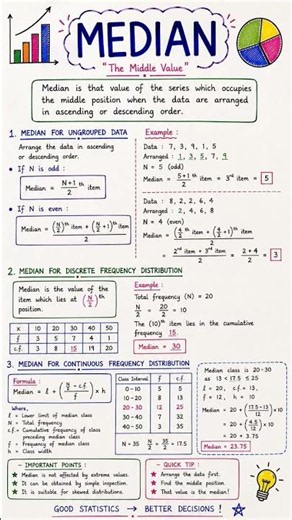 MEDIAN
"The Middle Value"
Median is that value of the series which occupies
the middle position when the data are arranged
in ascending or descending order.
1. MEDIAN FOR UNGROUPED DATA
Arrange the data in ascending
or descending order.
• If N is odd :
Median = N+1/2 th item
• If N is even :
Median = (N/2)th item + (N/2 + 1)th item / 2
Example :
Data : 7, 3, 9, 1, 5
Arranged : 1, 3, 5, 7, 9
N = 5 (odd)
Median = 5+1/2 th item = 3rd item = 5
Data : 8, 2, 2, 6, 4
Arranged : 2, 4, 6, 8
N = 4 (even)
Median = (4/2)th item + (4/2 + 1)th item / 2
= 2nd item + 3rd item / 2 = 2+4 / 2 = 3
2. MEDIAN FOR DISCRETE FREQUENCY DISTRIBUTION
Median is the value of the
item which lies at (N/2)th
position.
x 10 20 30 40 50
f 3 5 7 4 1
c.f. 3 8 15 19 20
Example :
Total frequency (N) = 20
N/2 = 20/2 = 10
The (10)th item lies in the cumulative
frequency 15.
Median = 30
3. MEDIAN FOR CONTINUOUS FREQUENCY DISTRIBUTION
Formula :
Median = ℓ + (N/2 - c.f. / f) × h
where,
ℓ = Lower limit of median class
N = Total frequency
c.f. = Cumulative frequency of class
preceding median class
f = Frequency of median class
h = Class width
Example :
Class Interval f c.f.
0-10 5 5
10-20 8 13
20-30 12 25
30-40 7 32
40-50 3 35
N = 35 N/2 = 35/2 = 17.5
Median class is 20-30
as 13 < 17.5 ≤ 25
ℓ = 20, c.f. = 13,
f = 12, h = 10
Median = 20 + (17.5-13 / 12) × 10
= 20 + (4.5/12) × 10
= 20 + 3.75
Median = 23.75
IMPORTANT POINTS :
★ Median is not affected by extreme values.
★ It can be obtained by simple inspection.
★ It is suitable for skewed distributions.
QUICK TIP :
★ Arrange the data first.
★ Find the middle position.
★ That value is the median!
GOOD STATISTICS → BETTER DECISIONS !